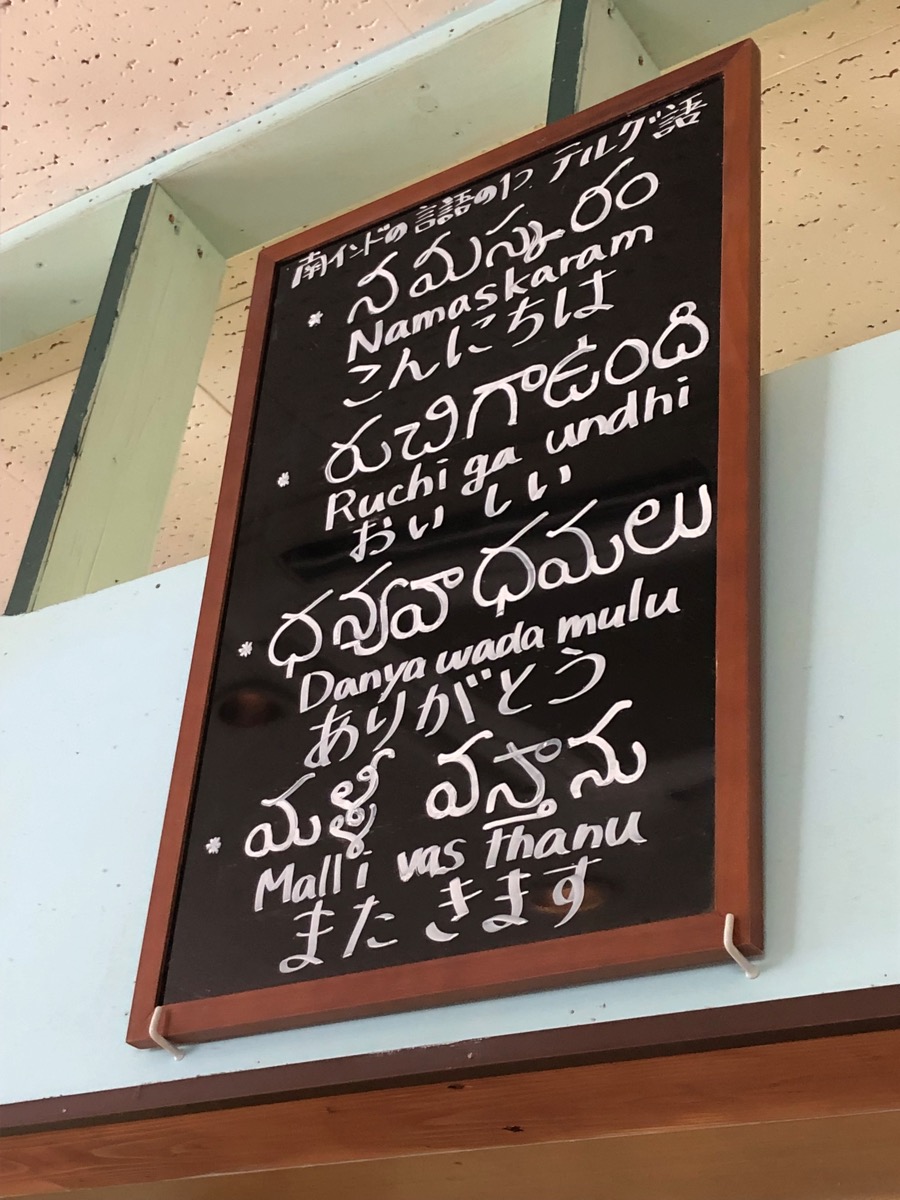 南インドの言語の1つ テルグ語
* నమస్కారం
Namaskaram
こんにちは
* రుచిగాఉంది
Ruchi ga undhi
おいしい
* ధన్యవాధమలు
Danya wada mulu
ありがとう
* మళ్ళీ వస్తాను
Malli vas thanu
また きます